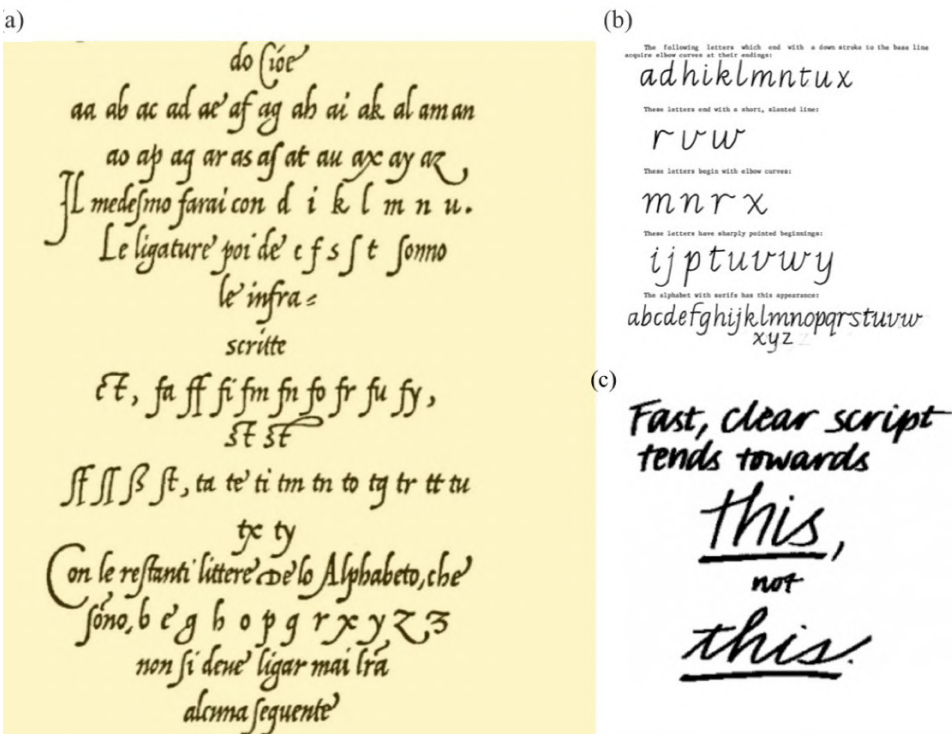 (a)
do Cioe
aa ab ac ad ae af ag ah ai ak al am an
ao ap aq ar as aſ at au ax ay az
Il medeſmo farai con d i k l m n u.
Le ligature poi de c f s ſ t ſonno
le infra =
scritte
ct, fa ff fi fm fn fo fr fu fy,
st st
ſf ſſ ß ſt, ta te ti tm tn to tq tr tt tu
tx ty
Con le reſtanti littere De lo Alphabeto, che
ſōno, b e g h o p q r x y z ʒ
non ſi deue ligar mai lr̃a
alcuna ſequente
(b)
The following letters which end with a down stroke to the base line
acquire elbow curves at their endings:
adhiklmntux
These letters end with a short, slanted line:
rvw
These letters begin with elbow curves:
mnrx
These letters have sharply pointed beginnings:
ijptuvwy
The alphabet with serifs has this appearance:
abcdefghijklmnopqrstuvw
xyz
(c)
Fast, clear script
tends towards
this,
not
this.